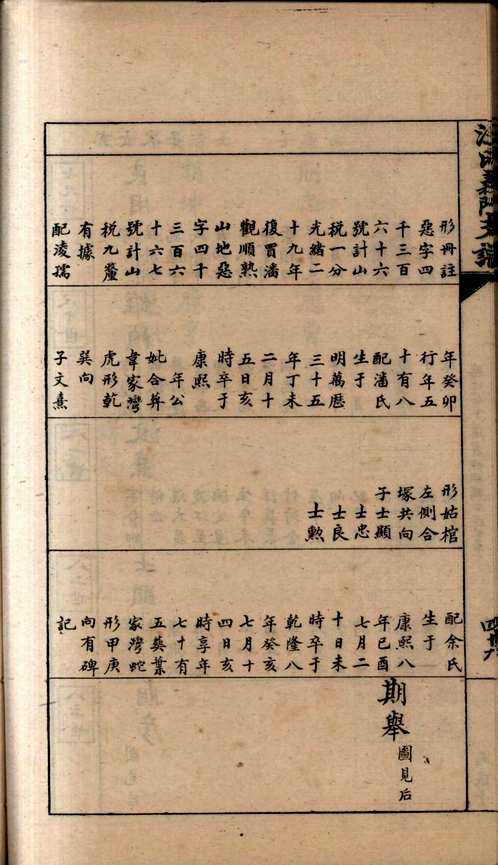 形冊註
惡字四
千三百
六十六
號計山
税一分
光緒二
十九年
復買潘
觀順熟
山地惡
字四千
三百六
十六七
號計山
税九釐
有據
配淩孺
年癸卯
行年五
十有八
配潘氏
生于
明萬厯
三十五
年丁未
二月十
五日亥
時卒于
康熙
年公
妣合葬
韋家灣
虎形乾
巽向
子文熹
形姑棺
左側合
塚共向
子士顯
士忠
士良
士勲
配余氏
生于
康熙八
年己酉
七月二
十日未
時卒于
乾隆八
年癸亥
七月十
四日亥
時享年
七十有
五葬葉
家灣蛇
形甲庚
向有碑
記
期舉 圖見后